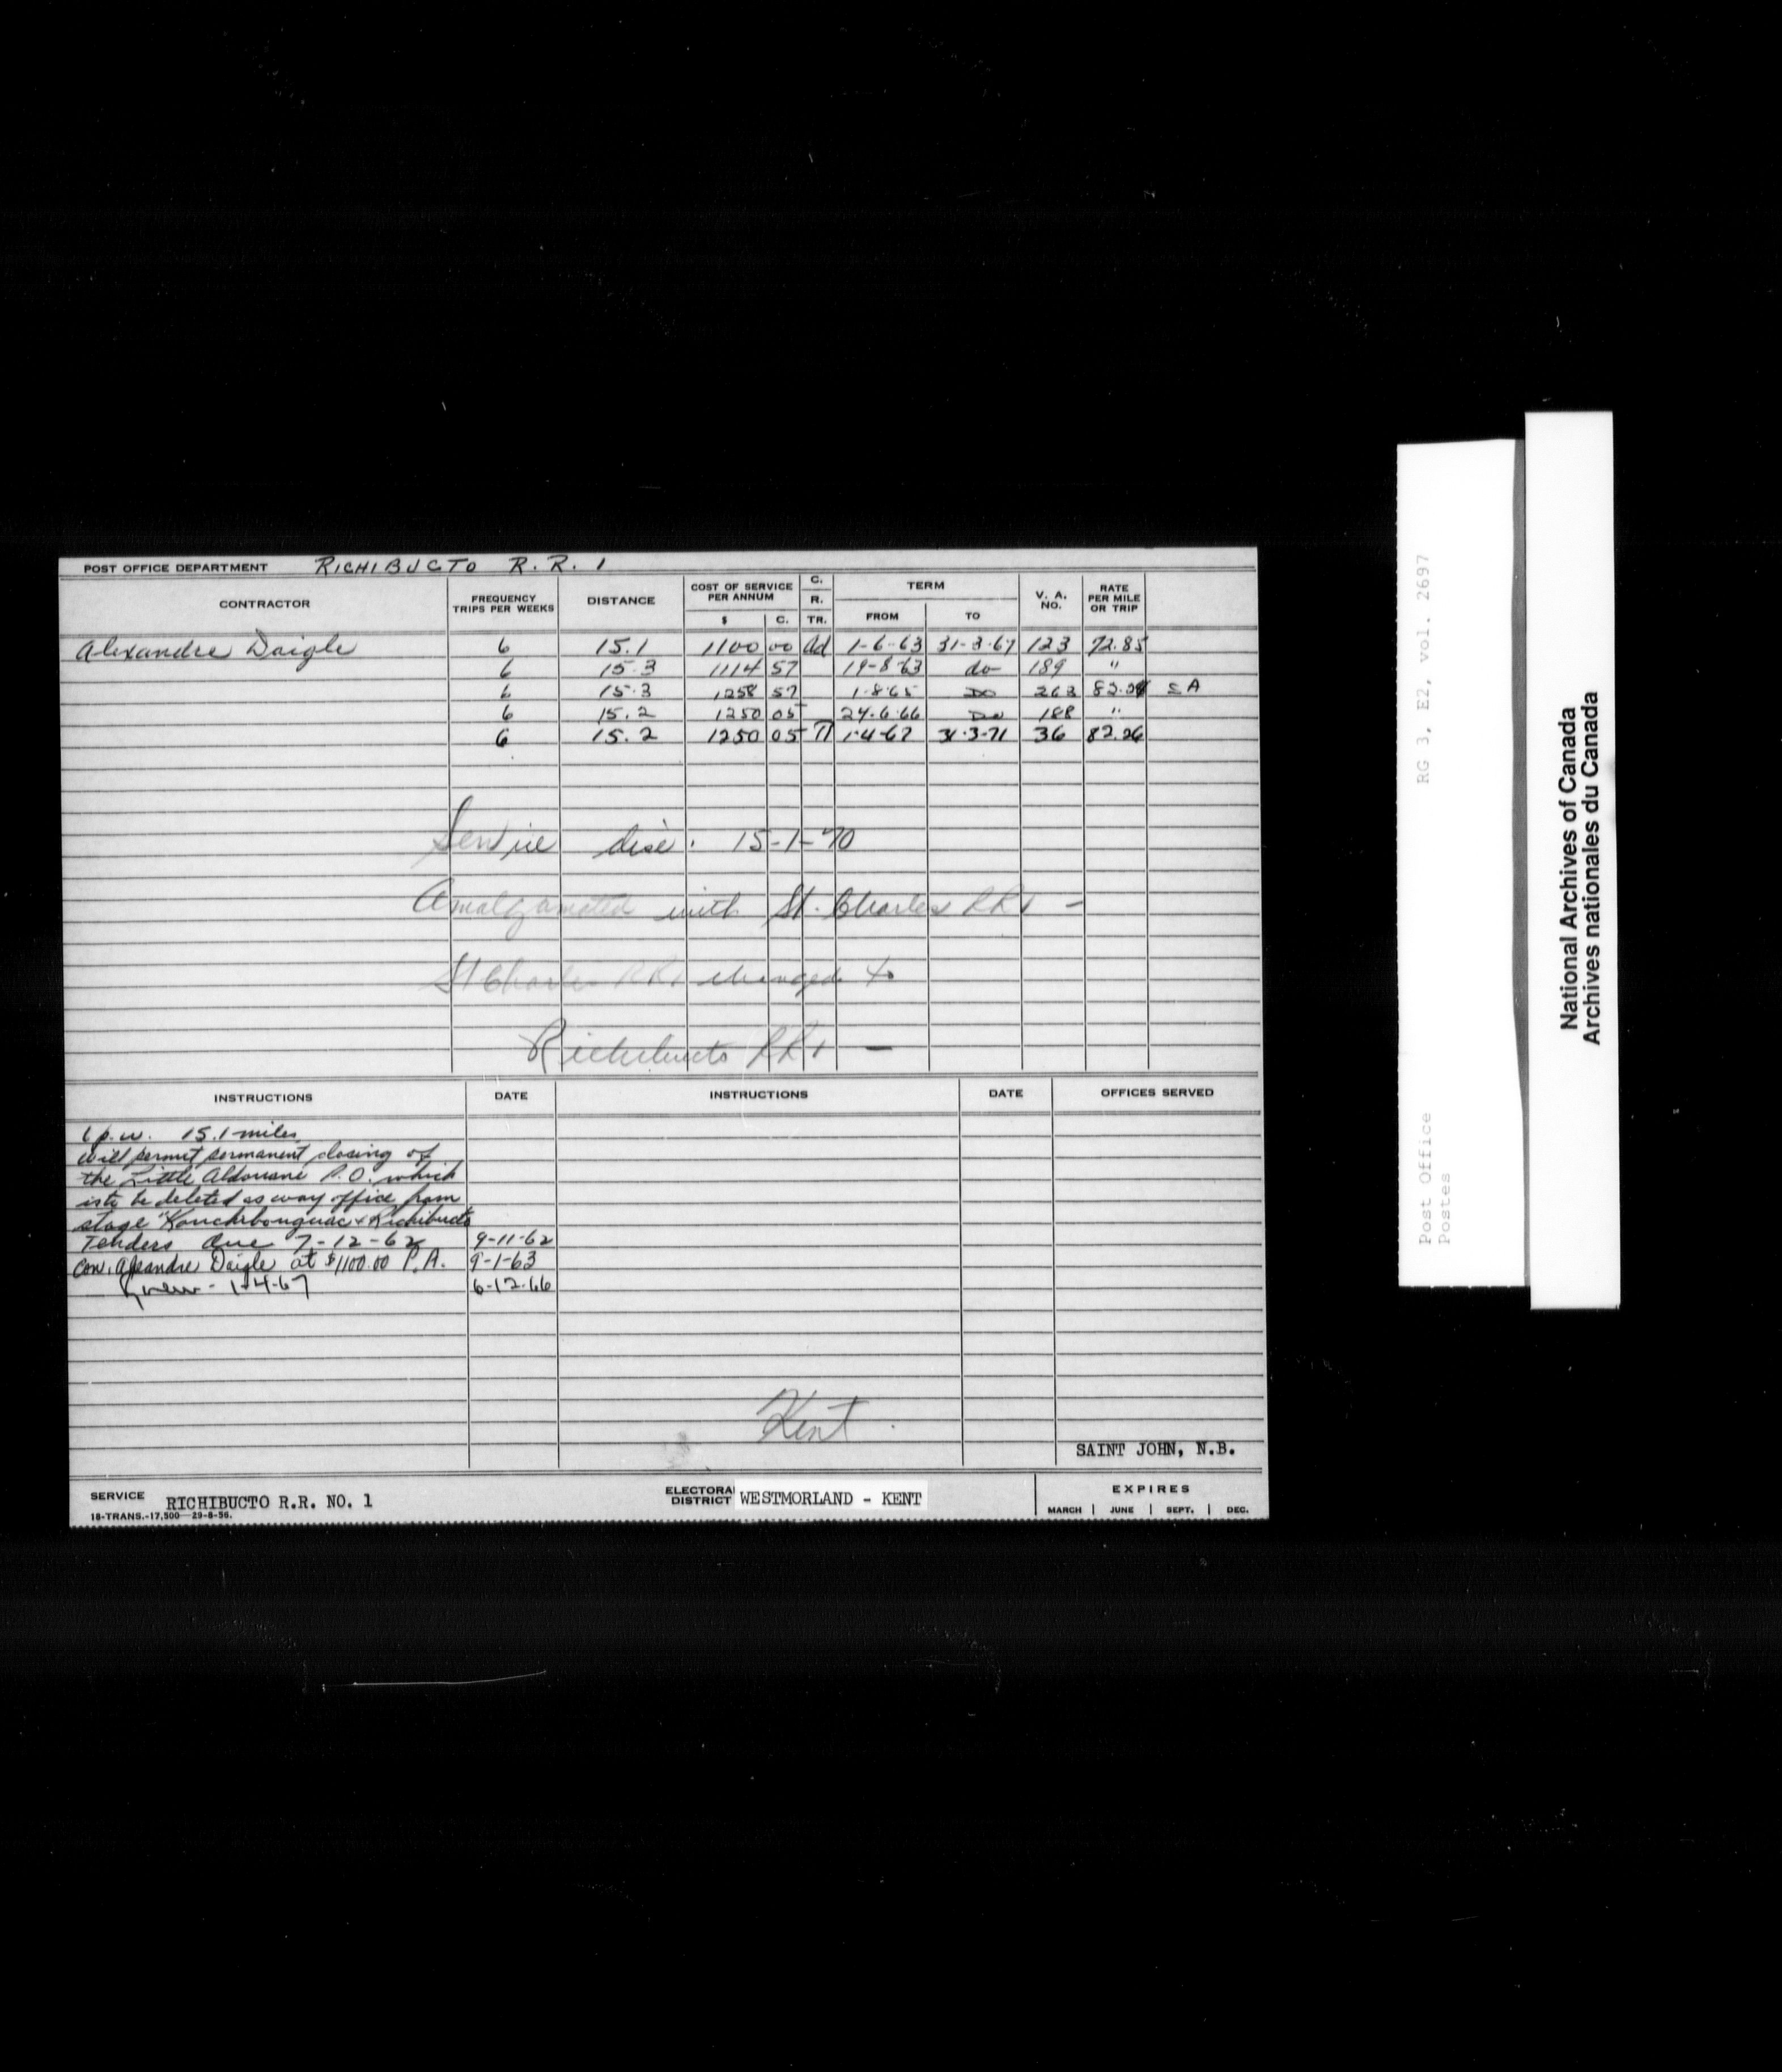 POST OFFICE DEPARTMENT RICHIBUCTO R. R. 1
CONTRACTOR FREQUENCY TRIPS PER WEEKS DISTANCE COST OF SERVICE PER ANNUM $ C. C. R. TR. TERM FROM TO V. A. NO. RATE PER MILE OR TRIP
Alexandre Daigle 6 15.1 1100 00 Ad 1-6-63 31-3-67 123 72.85
6 15.3 1114 57 19-8-63 do 189 "
6 15.3 1258 57 1-8-65 Do 263 SA
6 15.2 1250 05 24-6-66 Do 188 "
6 15.2 1250 05 1-4-67 31-3-71 36 82.26
Service disc. 15-1-70
Amalgamated with St. Charles RR1 -
St Charles RR1 changed to
Richibucto RR1 -
INSTRUCTIONS DATE INSTRUCTIONS DATE OFFICES SERVED
6 p.w. 15.1 miles
will permit permanent closing of
the Little Aldouane P.O. which
is to be deleted as way office from
stage Kouchibouguac & Richibucto
Tenders due 7-12-62 9-11-62
Con. Alexandre Daigle at $1100.00 P.A. 9-1-63
1-4-67 6-12-66
Kent
SAINT JOHN, N.B.
SERVICE RICHIBUCTO R.R. NO. 1 ELECTORAL DISTRICT WESTMORLAND - KENT EXPIRES
18-TRANS.-17,500-29-8-56. MARCH | JUNE | SEPT. | DEC.
RG 3, E2, vol. 2697
Post Office
Postes
National Archives of Canada
Archives nationales du Canada